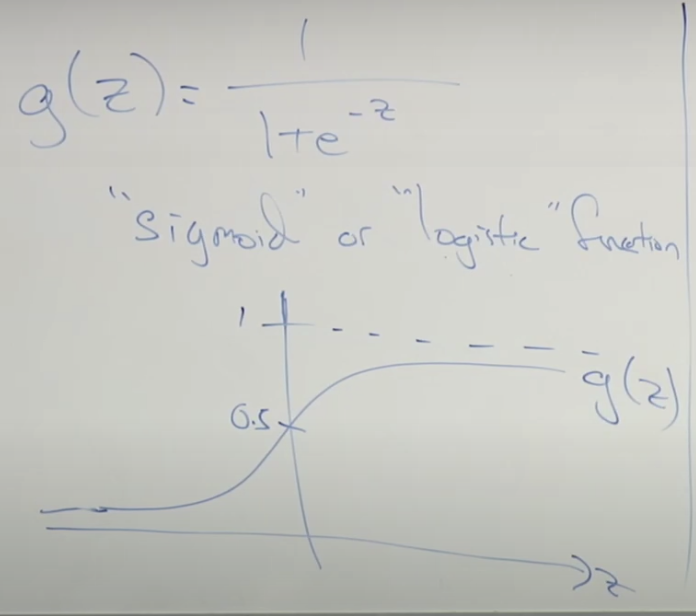 g(z) = 1 / (1+e^-z)
"sigmoid" or "logistic" function
1
g(z)
0.5
z